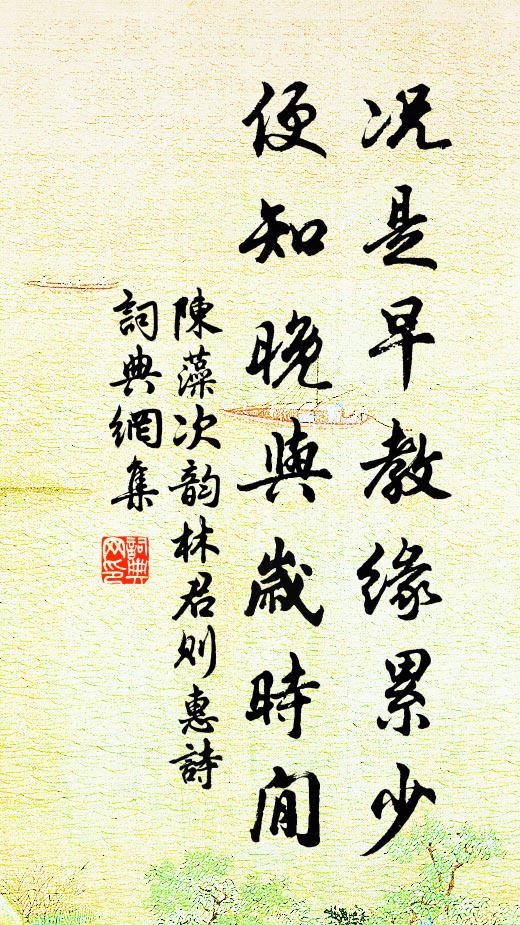 况是早教緣累少
便知晚與歲時閒
陳藻次韵林君則惠詩
詞典網集
詞典
网印